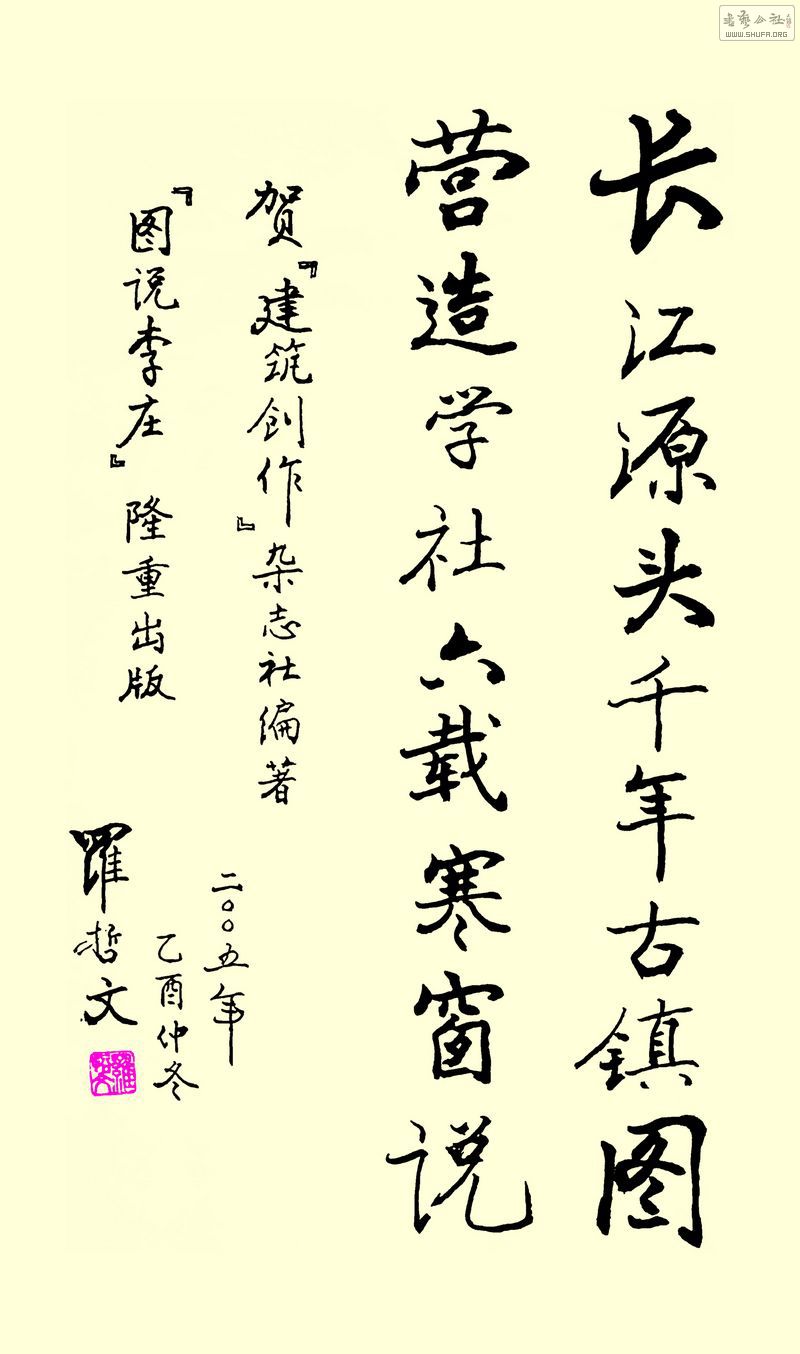 长江源头千年古镇图
营造学社六载寒窗说
贺『建筑创作』杂志社编著
『图说李庄』隆重出版
二〇〇五年
乙酉仲冬
罗哲文
WWW.SHUFA.ORG